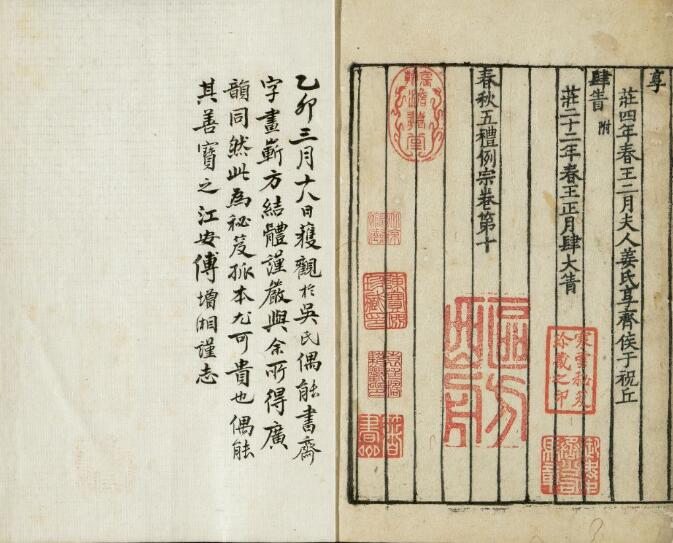 享
莊四年春王二月夫人姜氏享齊侯于祝丘
肆眚 附
莊二十二年春王正月肆大眚
春秋五禮例宗卷第十
寒雲秘笈珍藏之印
乙卯三月十八日獲觀於吳氏偶能書齋
字畫嶄方結體謹嚴與余所得廣
韻同然此為秘笈孤本尤可貴也偶能
其善寶之江安傅增湘謹志